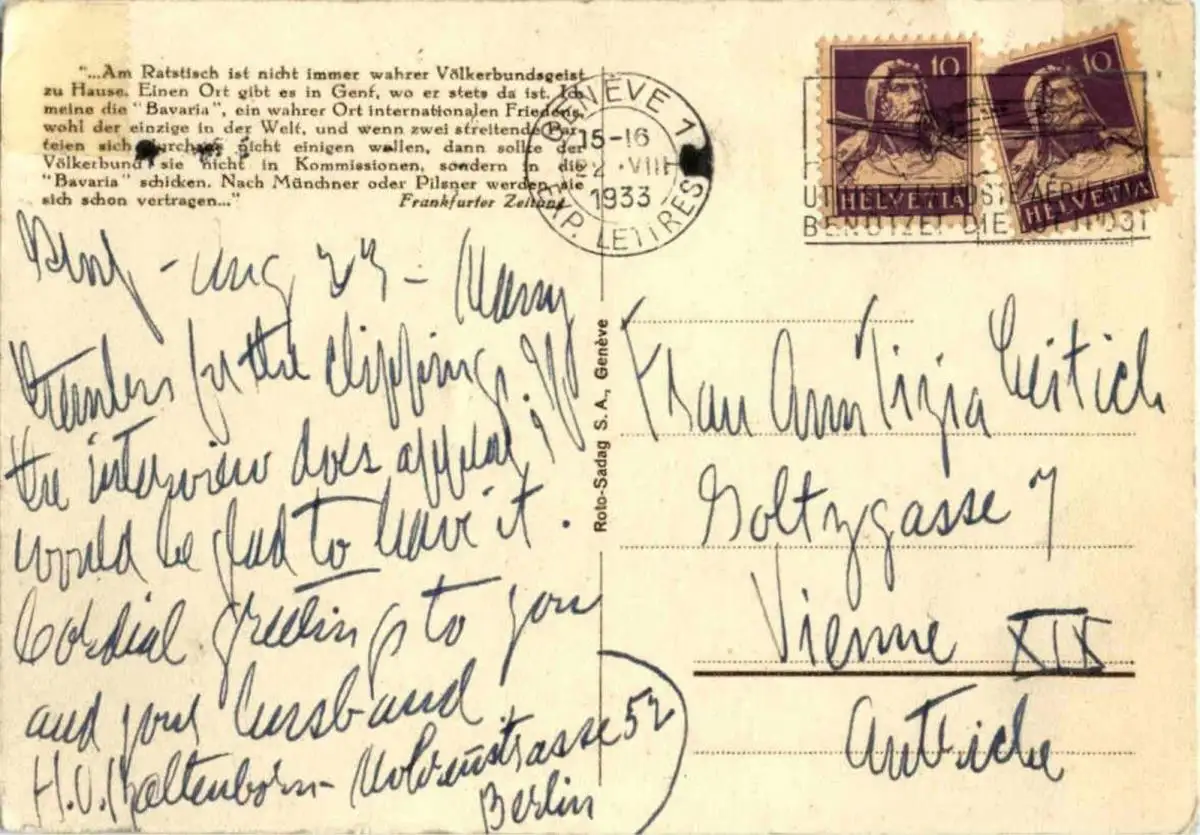 "...Am Ratstisch ist nicht immer wahrer Völkerbundsgeist
zu Hause. Einen Ort gibt es in Genf, wo er stets da ist. Ich
meine die "Bavaria", ein wahrer Ort internationalen Friedens,
wohl der einzige in der Welt, und wenn zwei streitende Par-
teien sich durchaus nicht einigen wollen, dann sollte der
Völkerbund sie nicht in Kommissionen, sondern in die
"Bavaria" schicken. Nach Münchner oder Pilsner werden sie
sich schon vertragen..."
Frankfurter Zeitung
GENÈVE 1
15-16
22.VIII
1933
EXP. LETTRES
10
HELVETIA
10
HELVETIA
UTILISEZ LA POSTE AÉRIENNE
BENUTZET DIE LUFTPOST
Aug 23 - Many
thanks for the clipping. If
the interview does appear, I
would be glad to have it.
Cordial greetings to you
and your husband
H.V. Kaltenborn -
52
Berlin
Roto-Sadag S. A., Genève
Frau Ann Tizia Leitich
Goltzgasse 7
Vienne XIX
Autriche